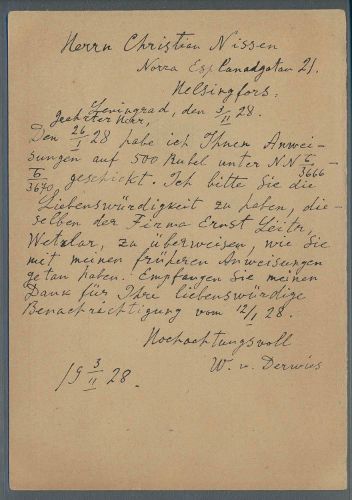 Herrn Christian Nissen
Norra Esplanadgatan 21.
Helsingfors.
Leningrad, den 3/II 28.
Geehrter Herr,
Den 26/I 28 habe ich Ihnen Anwei-
sungen auf 500 Rubel unter NN Б/3666 -
Б/3670 geschickt. Ich bitte Sie die
Liebenswürdigkeit zu haben, die-
selben der Firma Ernst Leitz,
Wetzlar, zu überweisen, wie Sie
mit meinen früheren Anweisungen
getan haben. Empfangen Sie meinen
Dank für Ihre liebenswürdige
Benachrichtigung vom 12/I 28.
Hochachtungsvoll
W. v. Derwies
19 3/II 28.